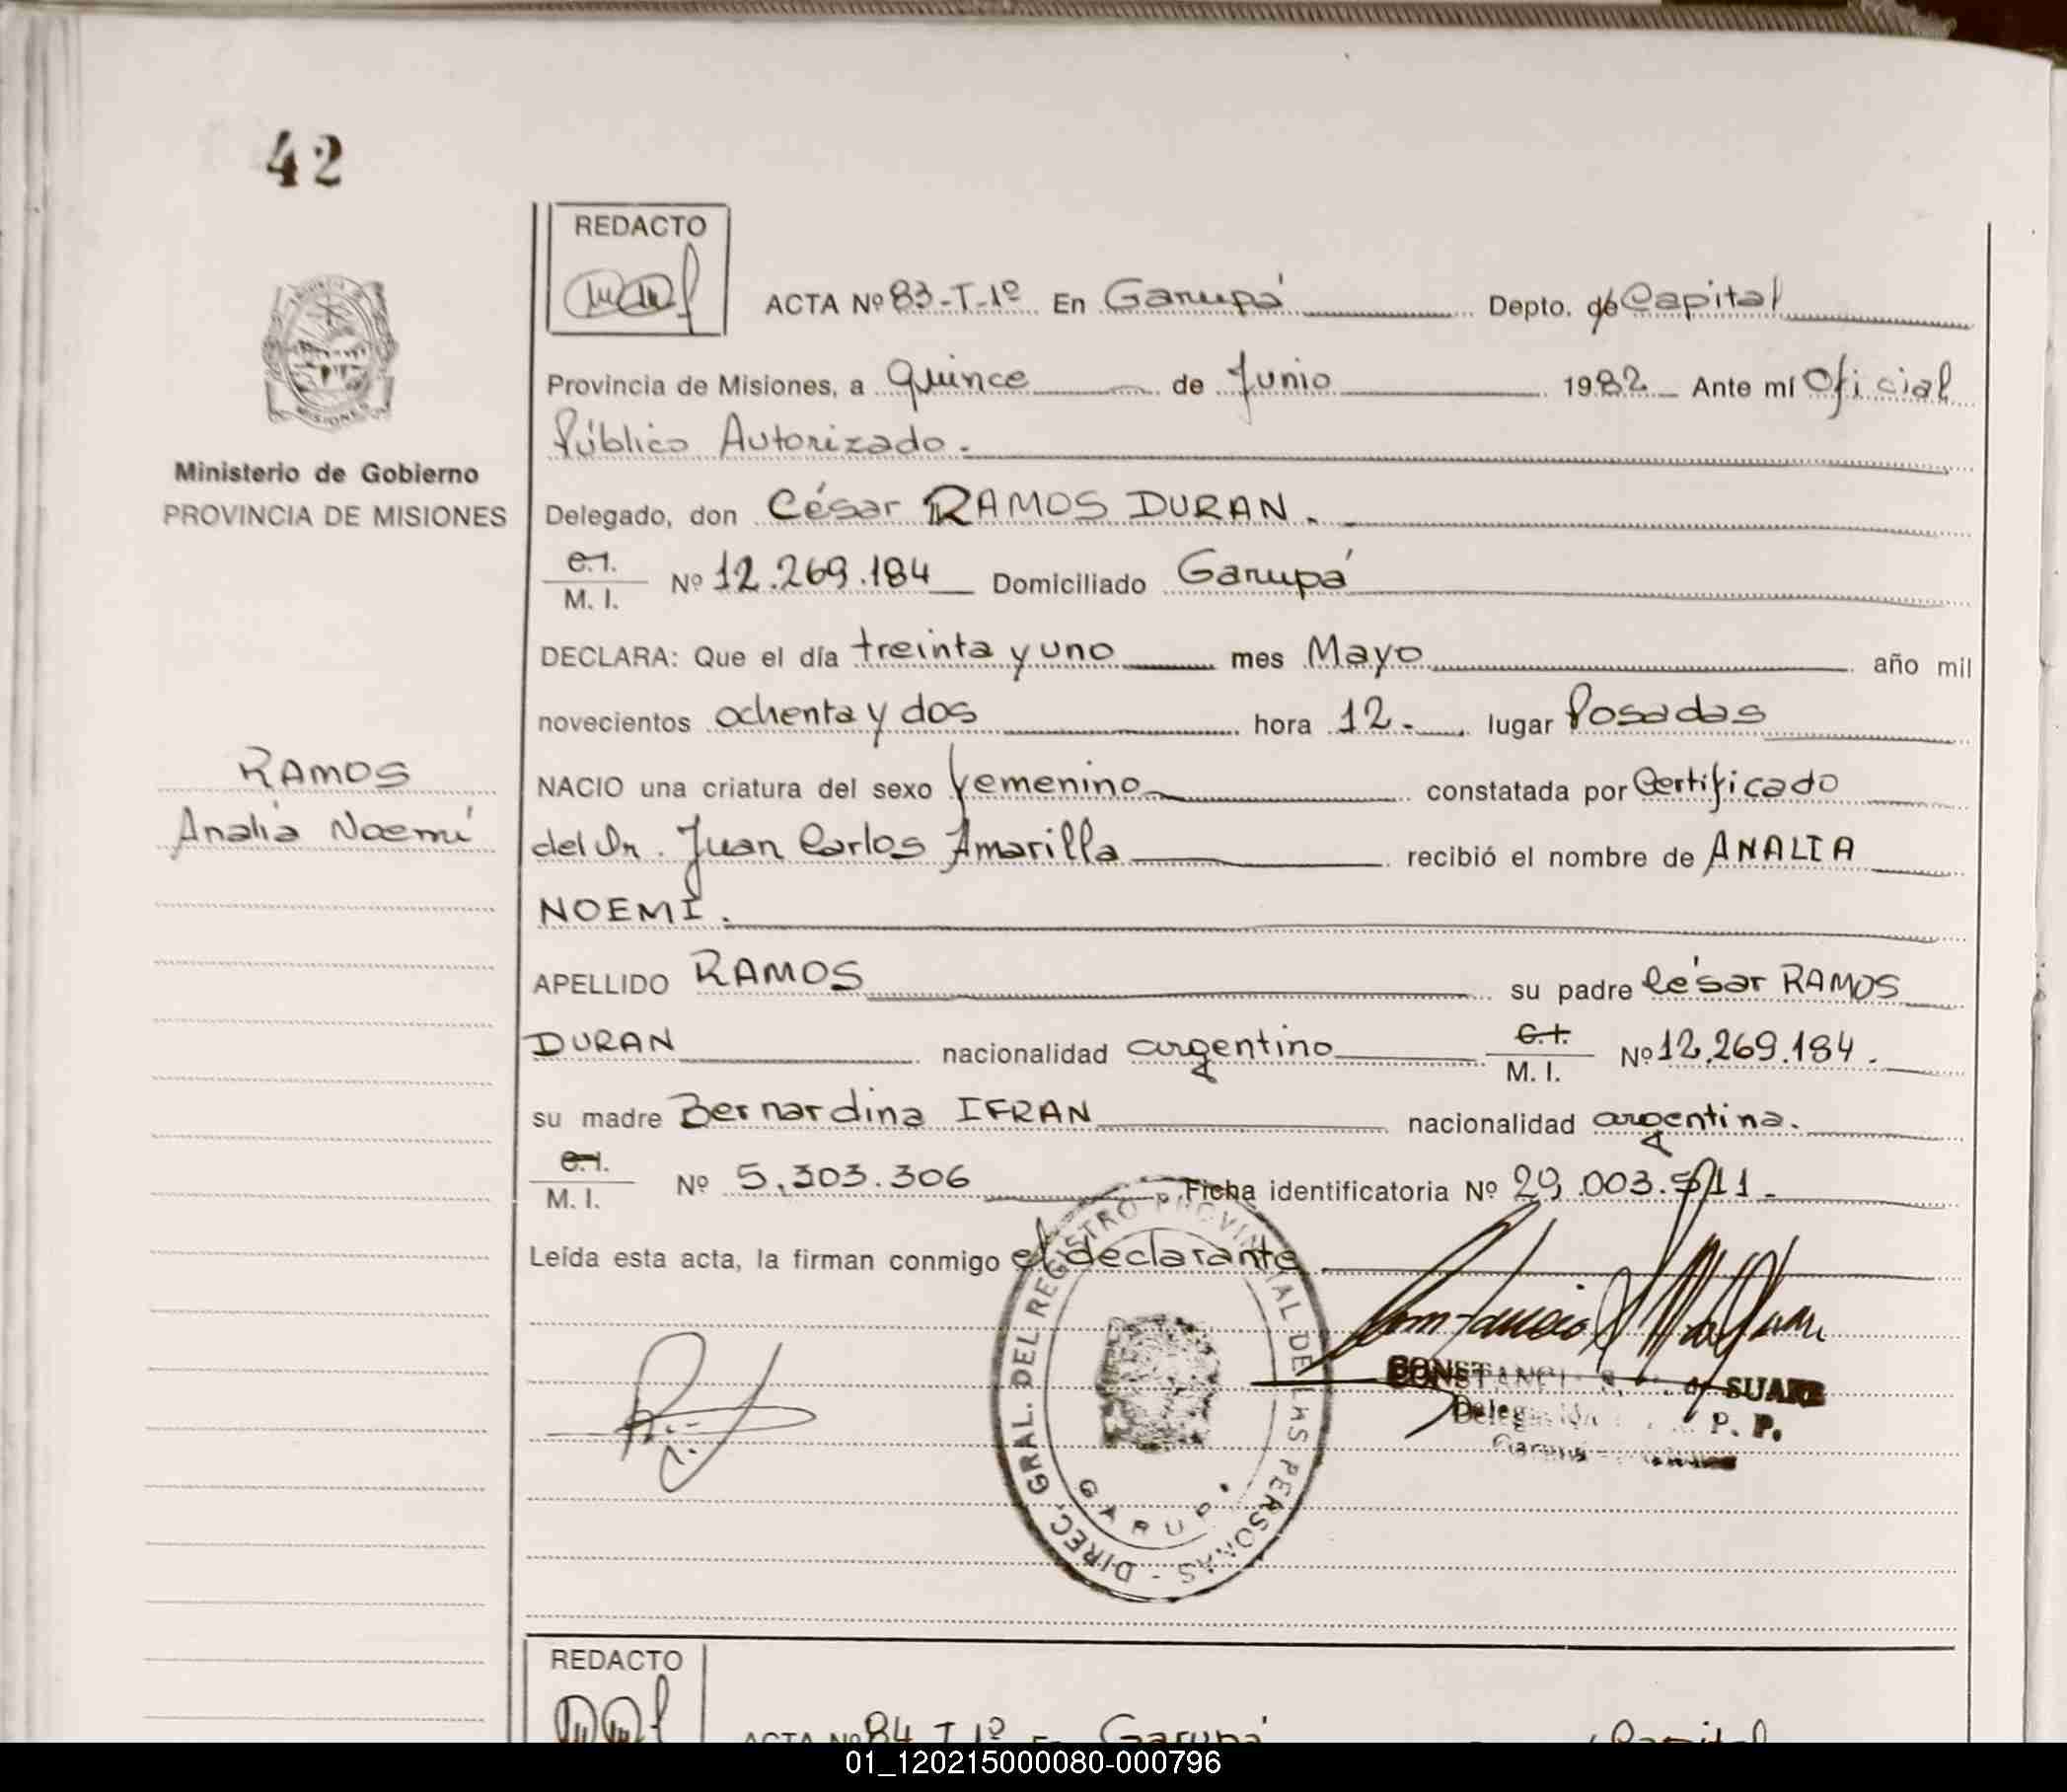 42
REDACTO
ACTA Nº 83-T-1º En Garupá Depto. de Capital
Provincia de Misiones, a quince de Junio 1982 Ante mí Oficial
Público Autorizado.
Ministerio de Gobierno
PROVINCIA DE MISIONES
Delegado, don César RAMOS DURAN.
C.I.
M. I. Nº 12.269.184 Domiciliado Garupá
DECLARA: Que el día treinta y uno mes Mayo año mil
novecientos ochenta y dos hora 12. lugar Posadas
RAMOS
Analía Noemí
NACIO una criatura del sexo femenino constatada por Certificado
del Dr. Juan Carlos Amarilla recibió el nombre de ANALIA
NOEMI.
APELLIDO RAMOS su padre César RAMOS
DURAN nacionalidad argentino C.I. M. I. Nº 12.269.184.
su madre Bernardina IFRAN nacionalidad argentina.
C.I.
M. I. Nº 5.303.306 Ficha identificatoria Nº 29.003.511.
Leída esta acta, la firman conmigo el declarante
DIREC. GRAL. DEL REGISTRO PROVINCIAL DE LAS PERSONAS -
GARUP
SUAR
P. P.
REDACTO
ACTA Nº 84 T 1º En Garupá Capital
01_120215000080-000796